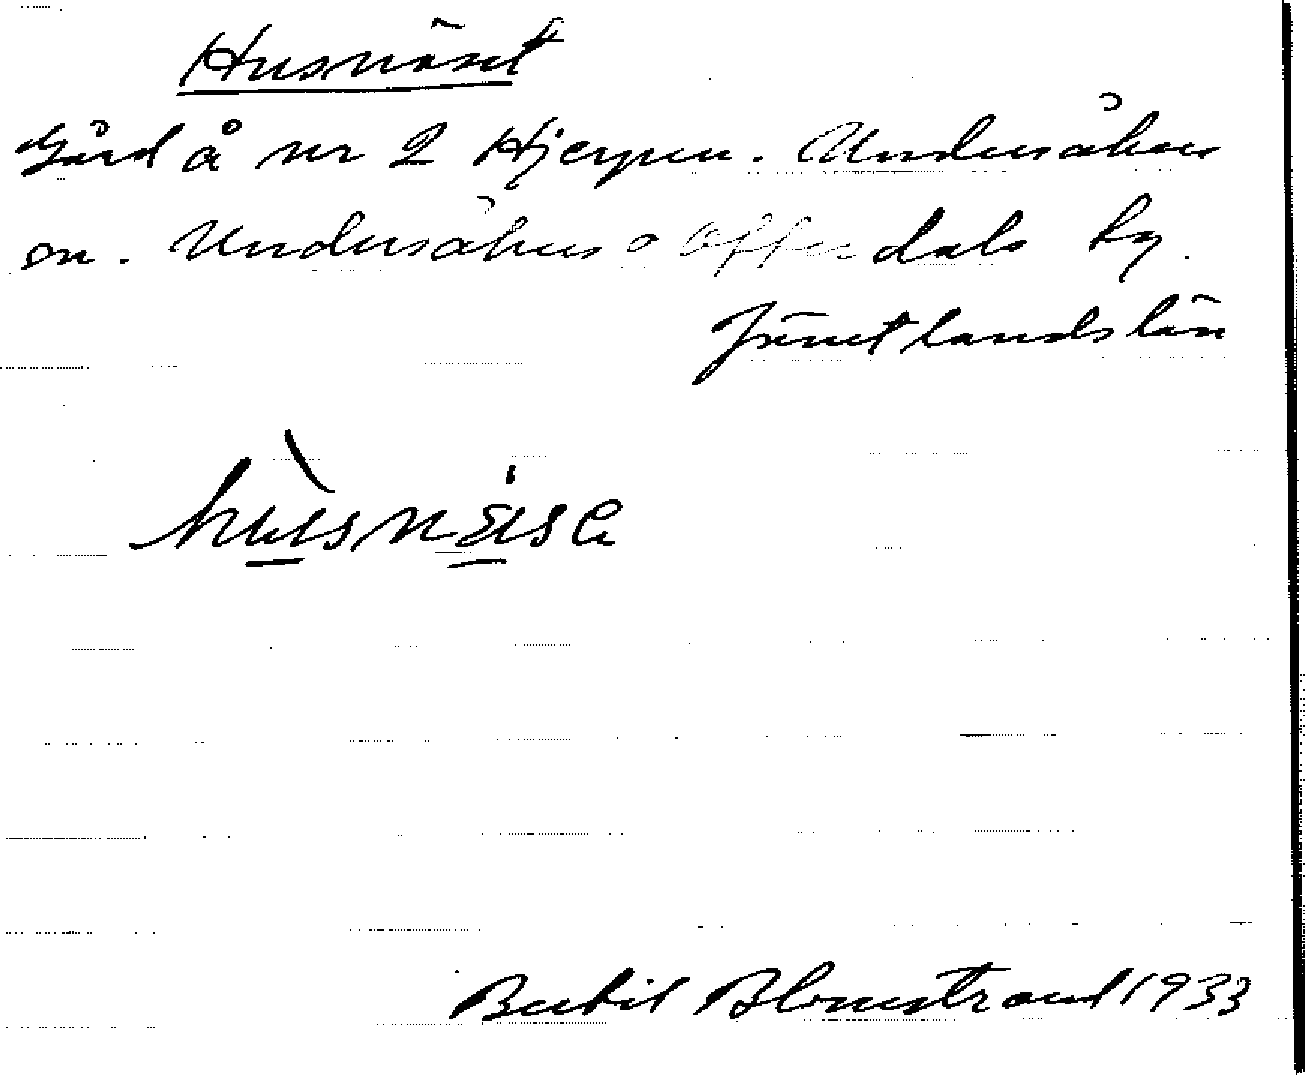 Husnäset
Gård å nr 2 Hjerpen. Undersåkers
sn. Undersåkers o Offerdals tg
Jämtlands län
hùsnä̀se
Bertil Blomstrand 1933